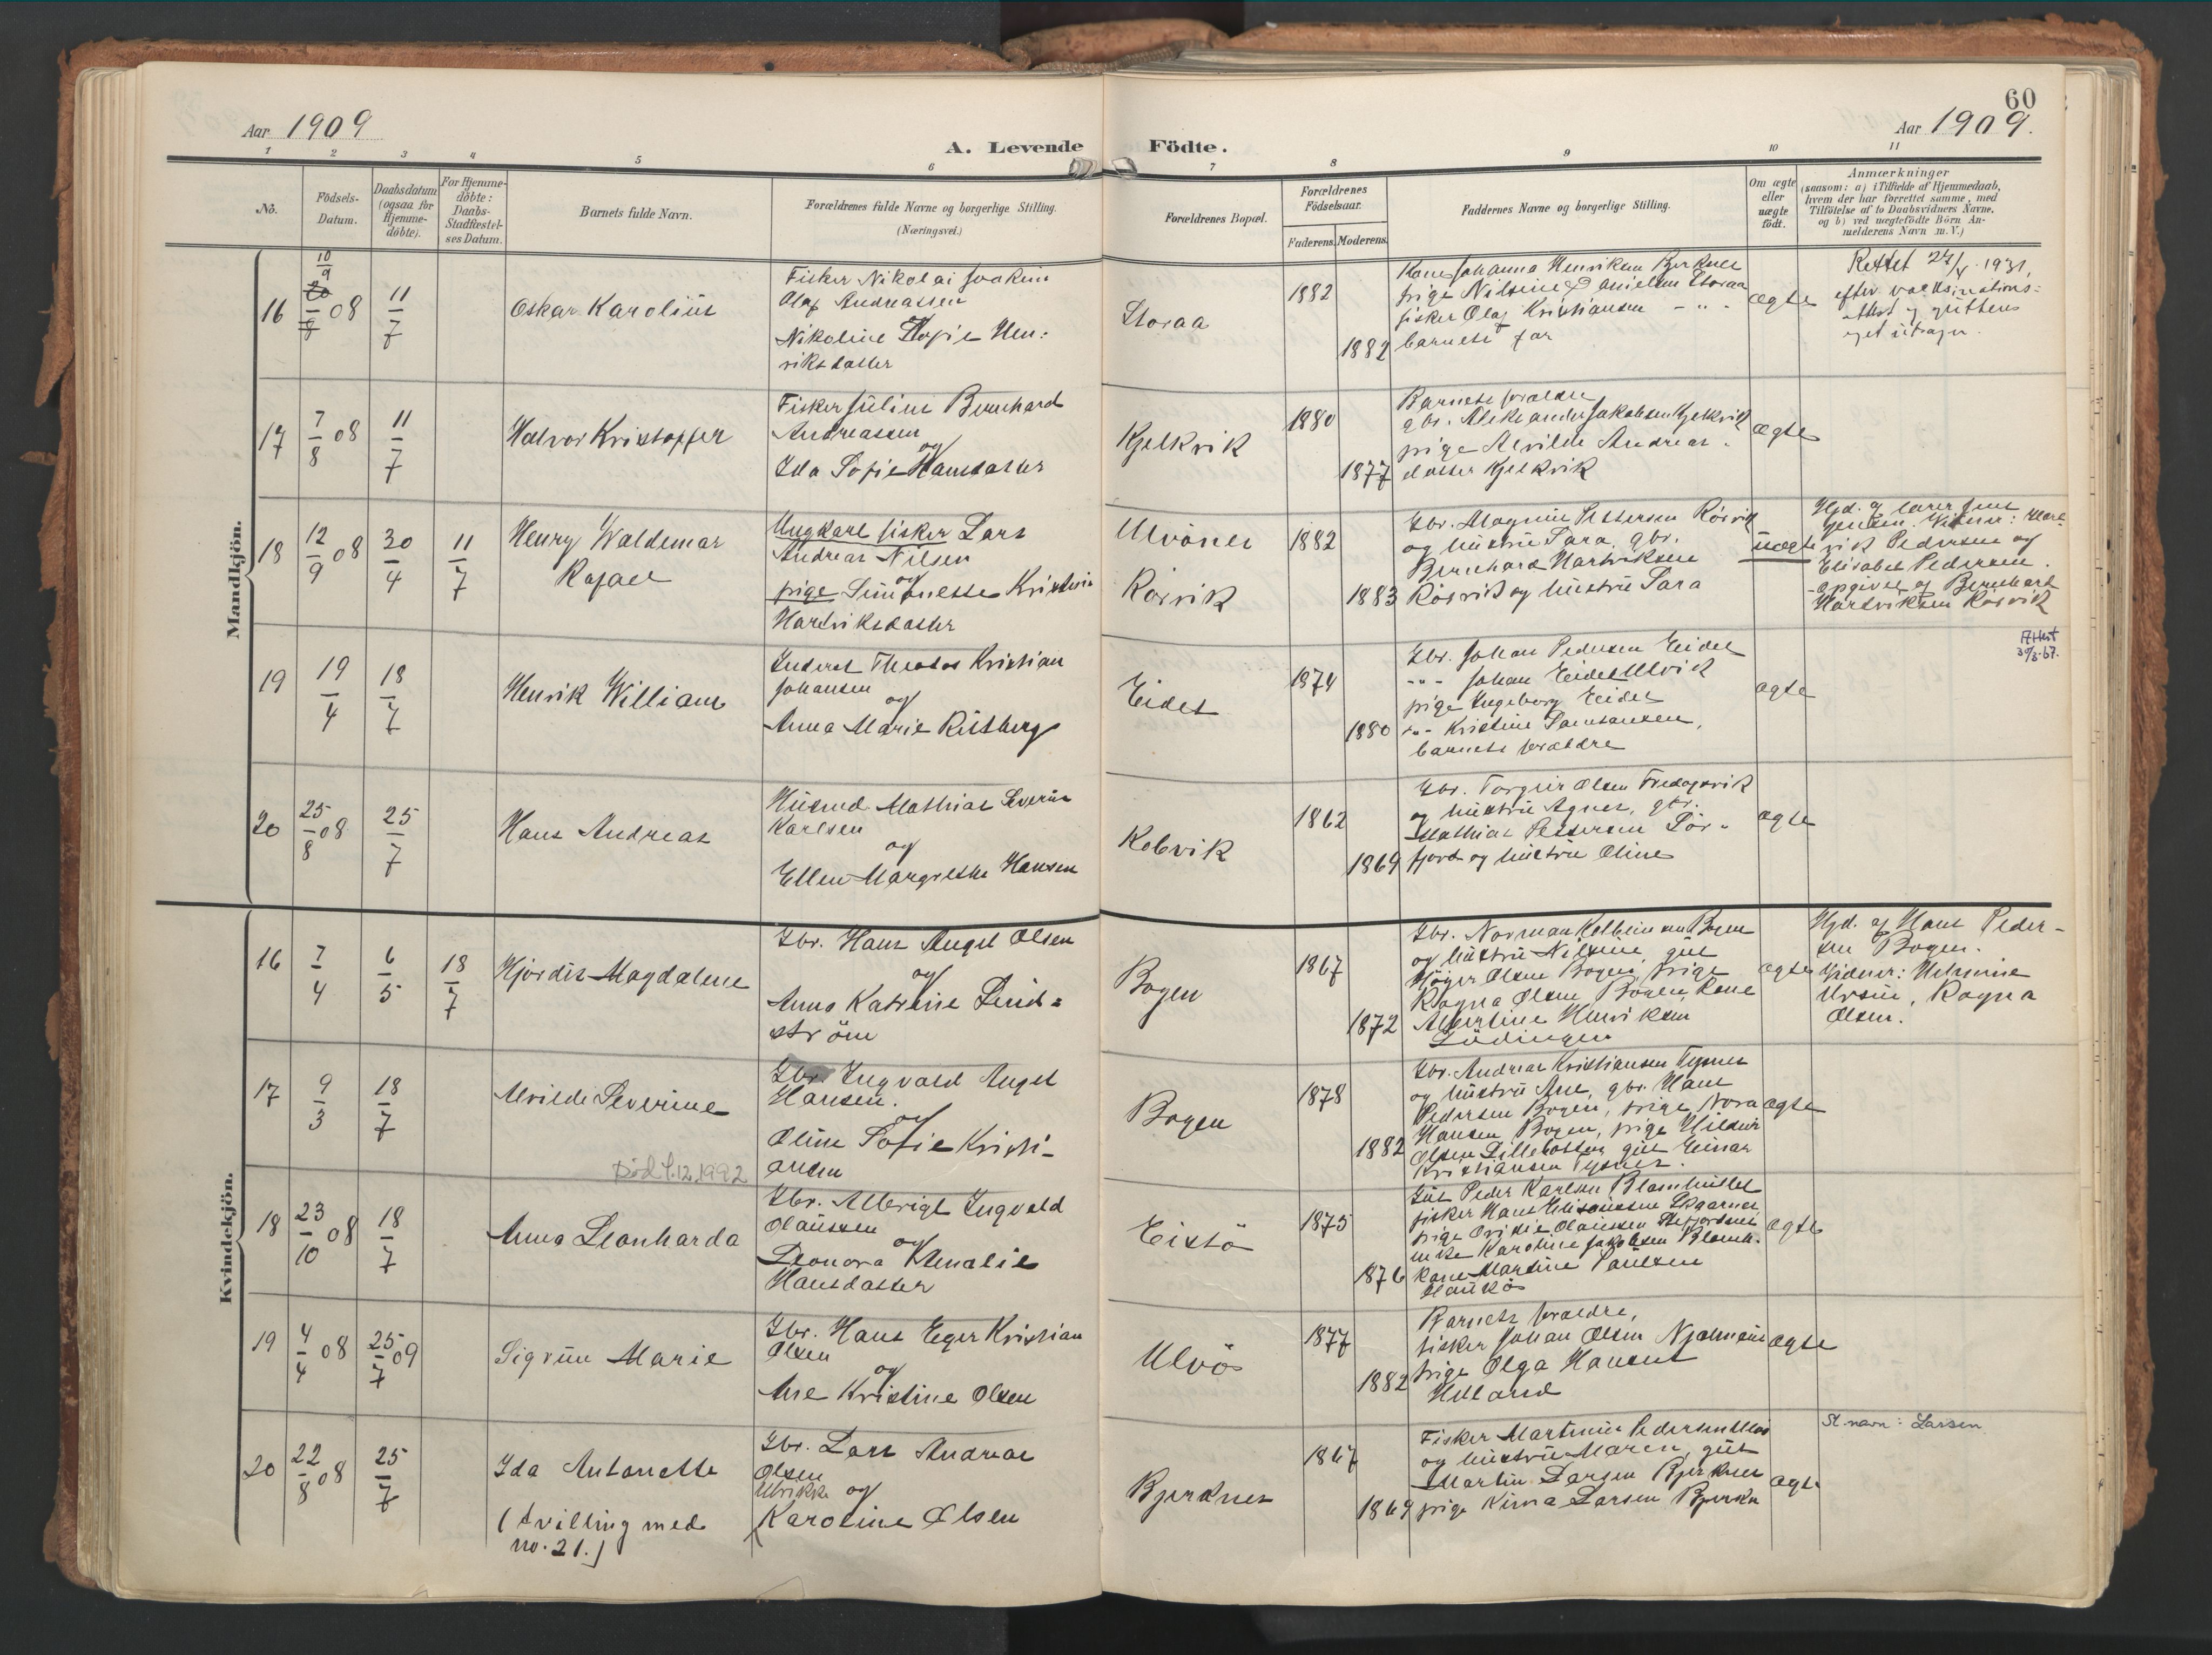 60
Aar 1909
Aar 1909.
A. Levende Födte.
1 2 3 4 5 6 7 8 9 10 11
No.
Födsels-
Datum.
Daabsdatum
(ogsaa for
Hjemme-
döbte).
For Hjemme-
döbte:
Daabs-
Stadfæstel-
ses Datum.
Barnets fulde Navn.
Forældrenes fulde Navne og borgerlige Stilling.
(Næringsvei.)
Forældrenes Bopæl.
Forældrenes
Födselsaar.
Faderens. Moderens.
Faddernes Navne og borgerlige Stilling.
Om ægte
eller
uægte
födt.
Anmærkninger
(saasom: a) i Tilfælde af Hjemmedaab,
hvem der har forrettet samme, med
Tilföielse af to Daabsvidners Navne,
og b) ved uægtefödte Börn An-
melderens Navn m. V.)
Mandkjön.
16
10/9
20/9 08
11/7
Oskar Karolius
Fisker Nikolai Joakim
Olaf Andreassen
og
Nikoline Sofie Hen:
riksdatter
Storaa
1882
1882
Kone Johanna Henriksen Bjerknes
pige Nilsine Danielsen Storaa
fisker Olaf Kristiansen - " -
barnets far
ægte
Rettet 27/4 1931,
efter vaksinations:
attest og guttens
eget utsagn.
17
7/8 08
11/7
Halvor Kristoffer
Fisker Julius Bernhard
Andreassen
og
Ida Sofie Hansdatter
Kjelkvik
1880
1877
Barnets foraldre
gbr. Aleksander Jakobsen Kjelkvik
pige Alvilde Andreas-
datter Kjelkvik
ægte
18
12/9 08
30/4
11/7
Henry Waldemar
Rafael
Ungkarl fisker Lars
Andreas Nilsen
og
pige Simonette Kristine
Hartviksdatter
Ulvönes
Rörvik
1882
1883
Gbr. Magnus Pettersen Rörvik
og hustru Sara, gbr.
Bernhard Hartviksen
Rörvik og hustru Sara
uægte
Hjd. af lærer Jens
Jensen. Vidner: Hart-
vik Pedersen og
Elisabet Pedersen.
Opgivet af Bernhart
Hartviksen Rörvik
19
19/4
18/7
Henrik William
Inderst Theodor Kristian
Johansen
og
Anna Marie Ritsberg
Eidet
1874
1880
Gbr. Johan Pedersen Eidet
" - Johan Eidet Ulvik
pige Ingeborg Eidet
" - Kristine Samsonsen,
barnets foraldre
ægte
Attest
30/3-67.
20
25/8 08
25/7
Hans Andreas
Husmd. Mathias Severin
Karlsen
og
Ellen Margrethe Hansen
Kobvik
1862
1869
Gbr. Torgeir Olsen Fredagsvik
og hustru Agnes, gbr.
Mathias Pettersen Sör-
fjord og hustru Oline
ægte
Kvindekjön.
16
7/4
6/5
18/7
Hjördis Magdalene
Gbr. Hans Angel Olsen
og
Anna Katrine Lind=
ström
Bogen
1867
1872
Gbr. Norman Kolbeinsen Bogen
og hustru Nilsine, gut
Höger Olsen Bogen, pige
Ragna Olsen Bogen, kone
Albertine Henriksen
Lödingen
ægte
Hjd. af Hans Peder-
sen Bogen.
Vidner: Helmine
Ursin, Ragna
Olsen.
17
9/3
18/7
Alvilde Severine
Död 1.12.1992
Gbr. Ingvald Angel
Hansen.
og
Oline Sofie Kristi-
ansen
Bogen
1878
1882
Gbr. Andreas Kristiansen Tysnes
og hustru Ane, gbr. Hans
Pedersen Bogen, pige Nora
Hansen Bogen, pige Hildur
Olsen Lillebotten, gut Einar
Kristiansen Tysnes.
ægte
18
23/10 08
18/7
Anna Leonharda
Gbr. Albrigt Ingvald
Olaussen
og
Leonora Amalie
Hansdatter
Eistö
1875
1876
Gut Peder Karlsen Blomhullet
fisker Hans Skaarnes
pige Olaussen
enke Karoline Jakobsen Blomh.
kone Martine Paulsen
Haukö
ægte
19
4/4 08
25/7 09
Sigrun Marie
Gbr. Hans Eger Kristian
Olsen
og
Ane Kristine Olsen
Ulvö
1877
1882
Barnets foraldre,
fisker Johan Olsen
pige Olga Hansen
Helland
ægte
20
22/8 08
25/7
Ida Antonette
(tvilling med
no. 21.)
Gbr. Lars Andreas
Olsen
Ulrikke og
Karoline Olsen
Bjerknes
1867
1869
Fisker Martinus Pedersen
og hustru Maren, gut
Martin Larsen Bjerknes
pige Kirna Larsen Bjerkn
ægte
Sl.navn: Larsen